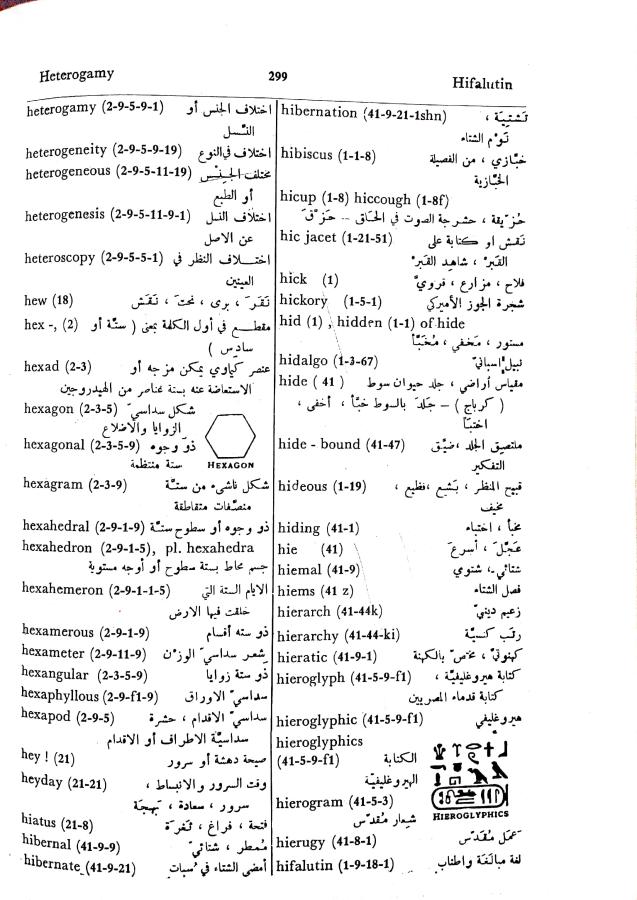 Heterogamy
299
Hifalutin
heterogamy (2-9-5-9-1) اختلاف الجنس أو
النسل
heterogeneity (2-9-5-9-19) اختلاف في النوع
heterogeneous (2-9-5-11-19) مختلف الجنس
أو الطبع
heterogenesis (2-9-5-11-9-1) اختلاف النسل
عن الاصل
heteroscopy (2-9-5-5-1) اختلاف النظر في
العينين
hew (18) نقر ، برى ، نحت ، نقش
hex -, (2) مقطع في أول الكلمة بمعنى ( ستة أو
سادس )
hexad (2-3) عنصر كياوي يمكن مزجه أو
الاستعاضة عنه بستة عناصر من الهيدروجين
hexagon (2-3-5) شكل سداسي
الزوايا والاضلاع
hexagonal (2-3-5-9) ذو وجوه
ستة منتظمة
HEXAGON
hexagram (2-3-9) شكل ناشىء من ستة
منصفات متقاطعة
hexahedral (2-9-1-9) ذو وجوه أو سطوح ستة
hexahedron (2-9-1-5), pl. hexahedra
جسم محاط بستة سطوح أو أوجه مستوية
hexahemeron (2-9-1-1-5) الايام الستة التي
خلقت فيها الارض
hexamerous (2-9-1-9) ذو سته أقسام
hexameter (2-9-11-9) شعر سداسي الوزن
hexangular (2-3-5-9) ذو ستة زوايا
hexaphyllous (2-9-f1-9) سداسي الاوراق
hexapod (2-9-5) سداسي الاقدام ، حشرة
سداسية الاطراف أو الاقدام
hey ! (21) صيحة دهشة أو سرور
heyday (21-21) وقت السرور والانبساط ،
سرور ، سعادة ، بهجة
hiatus (21-8) فتحة ، فراغ ، ثغرة
hibernal (41-9-9) ممطر ، شتائي
hibernate (41-9-21) أمضى الشتاء في سبات
hibernation (41-9-21-1shn) تشتية ،
نوم الشتاء
hibiscus (1-1-8) خبازي ، من الفصيلة
الخبازية
hicup (1-8) hiccough (1-8f)
حزيقة ، حشرجة الصوت في الحلق -- حزق
hic jacet (1-21-51) نقش او كتابة على
القبر ، شاهد القبر
hick (1) فلاح ، مزارع ، قروي
hickory (1-5-1) شجرة الجوز الأميركي
hid (1) , hidden (1-1) of hide
مستور ، مخفي ، مخبأ
hidalgo (1-3-67) نبيل إسباني
hide ( 41 ) مقياس أراضي ، جلد حيوان سوط
( كرباج ) – جلد بالسوط خبأ ، أخفى ،
اختبأ
hide - bound (41-47) ملتصق الجلد ، ضيق
التفكير
hideous (1-19) قبيح المنظر ، بشع ، فظيع ،
مخيف
hiding (41-1) مخبأ ، اختباء
hie (41) عجل ، أسرع
hiemal (41-9) شتائي ، شتوي
hiems (41 z) فصل الشتاء
hierarch (41-44k) زعيم ديني
hierarchy (41-44-ki) رتب كنسية
hieratic (41-9-1) كهنوتي ، مختص بالكهنة
hieroglyph (41-5-9-f1) كتابة هيروغليفية ،
كتابة قدماء المصريين
hieroglyphic (41-5-9-f1) هيروغليفي
hieroglyphics
(41-5-9-f1) الكتابة
الهيروغليفية
hierogram (41-5-3)
شعار مقدس
HIEROGLYPHICS
hierugy (41-8-1) عمل مقدس
hifalutin (1-9-18-1) لغة مبالغة واطناب